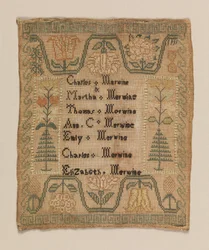 Charles Merwine
&
Martha Merwine
Thomas Merwine
Ann C Merwine
Emly Merwine
Charles Merwine
Elizabeth Merwine